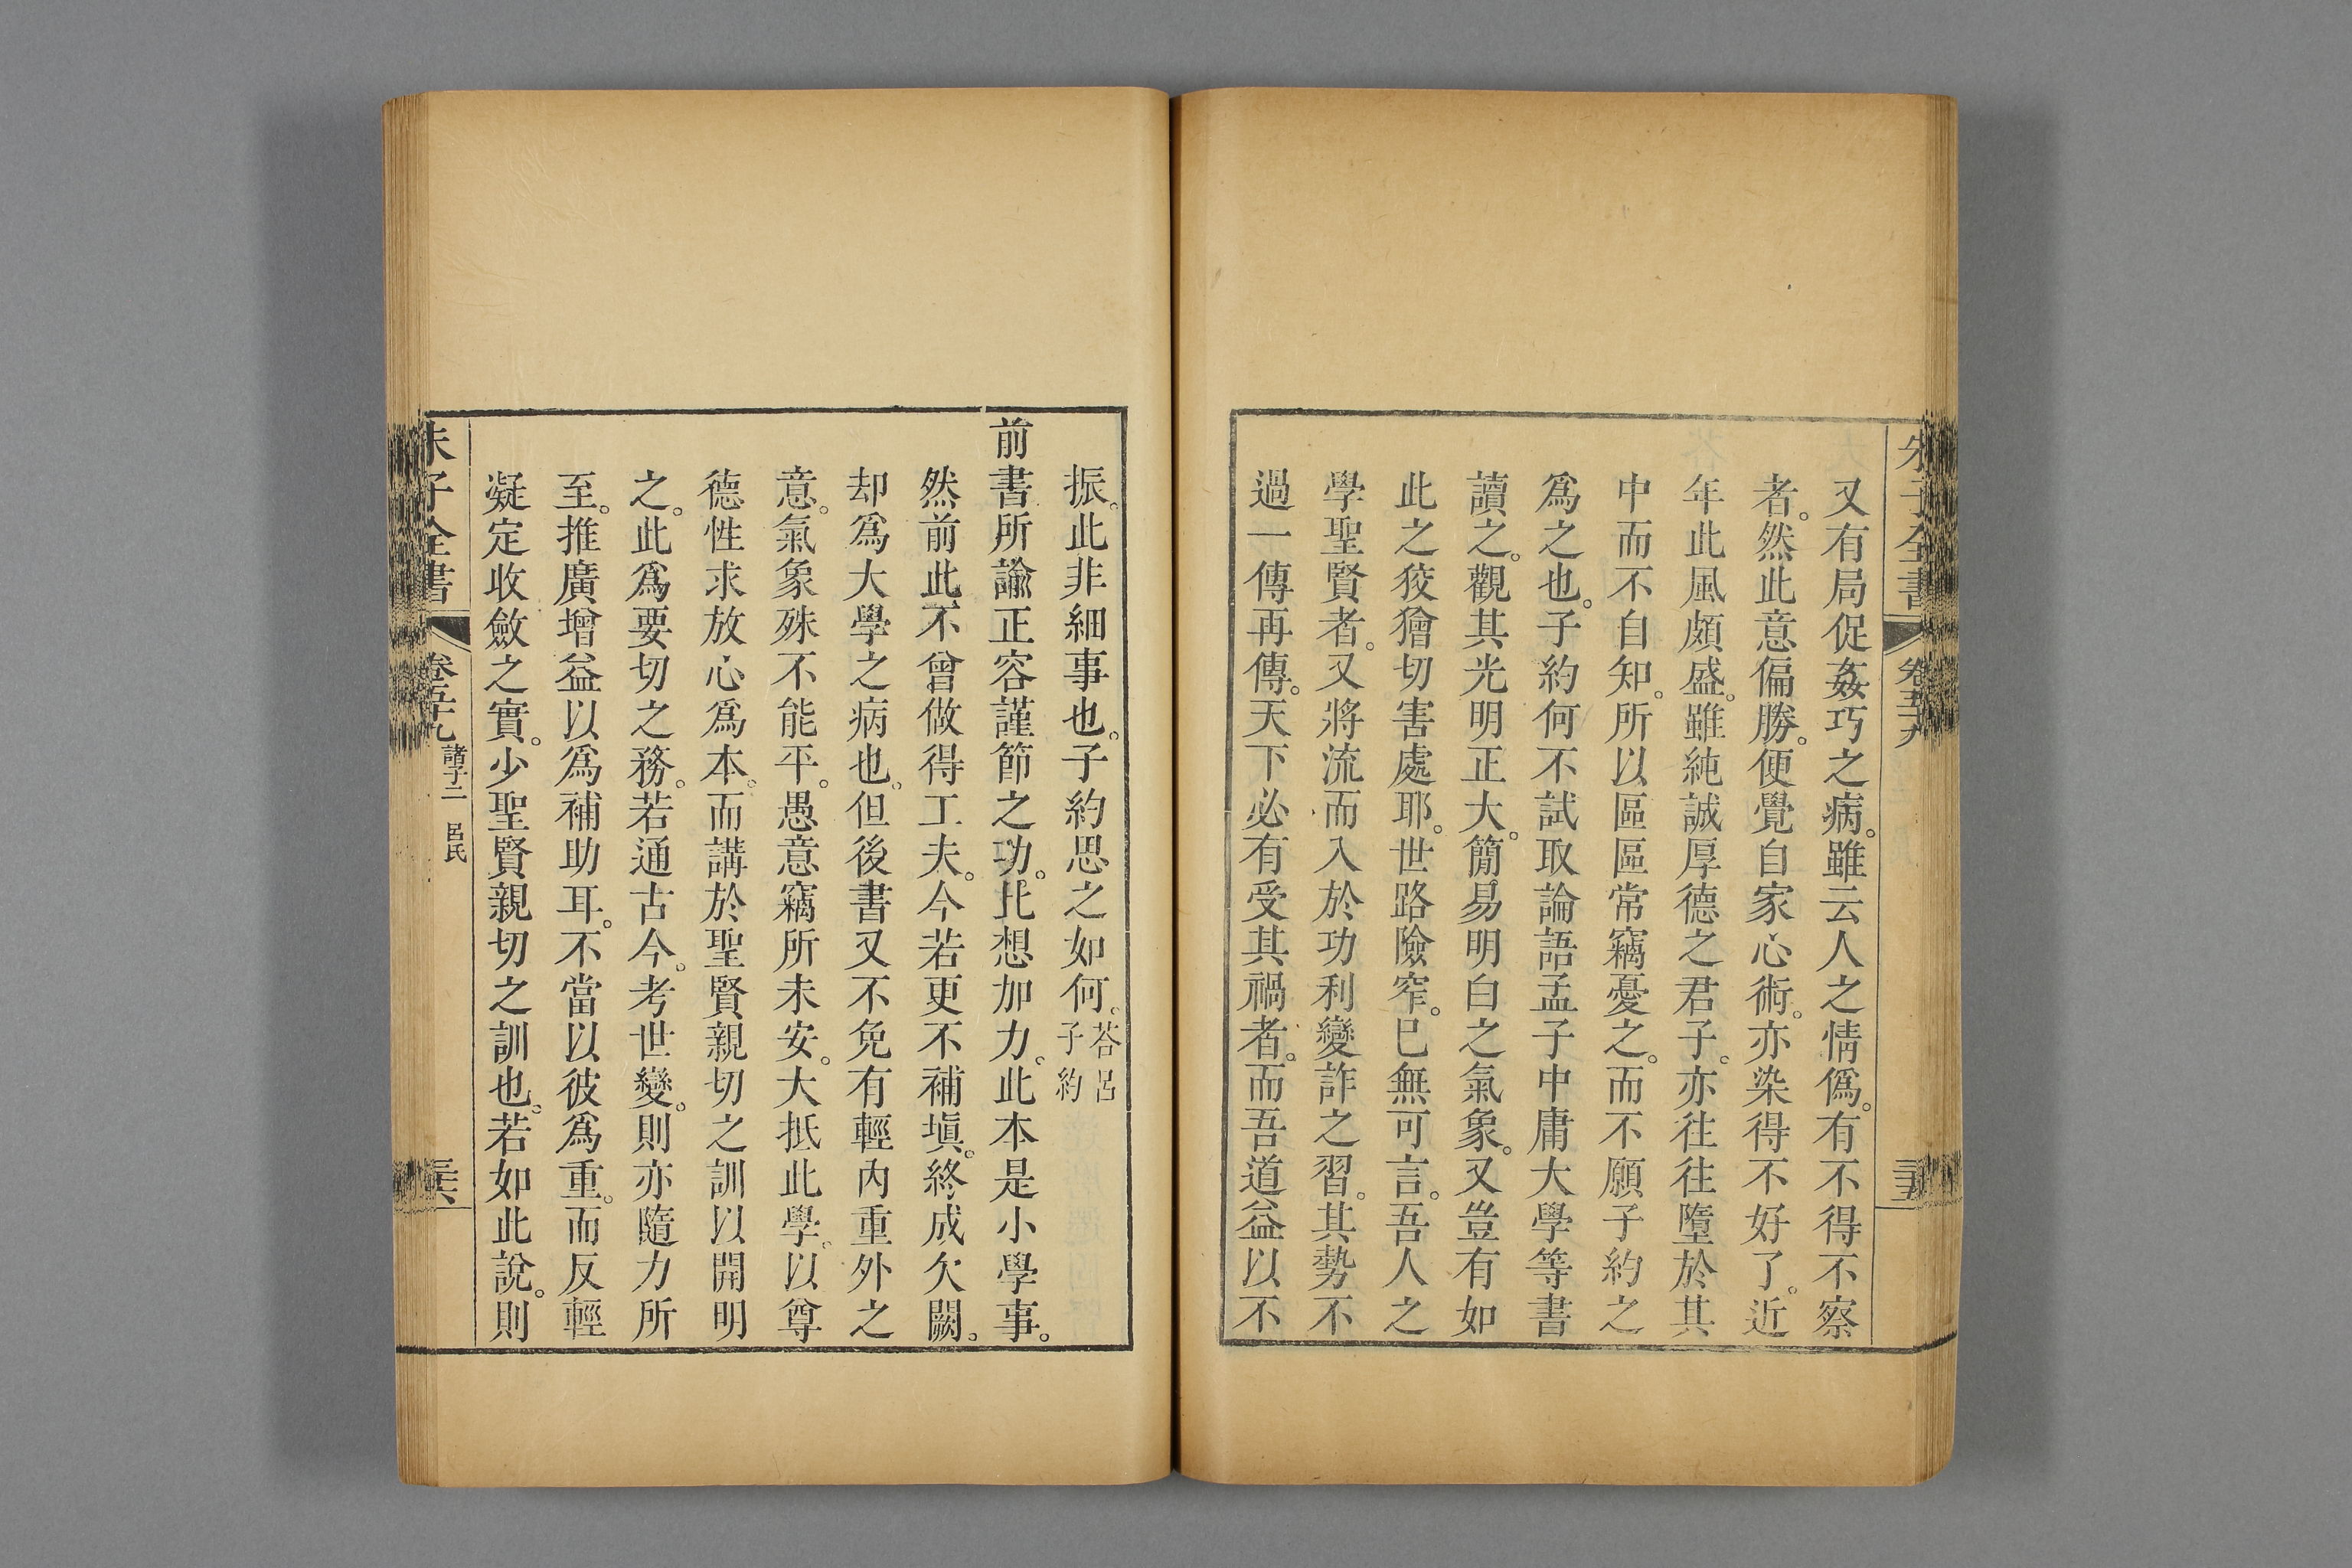 朱子全書 卷五十九 三五
又有局促姦巧之病。雖云人之情僞。有不得不察
者。然此意偏勝。便覺自家心術。亦染得不好了。近
年此風頗盛。雖純誠厚德之君子。亦往往墮於其
中而不自知。所以區區常竊憂之。而不願子約之
爲之也。子約何不試取論語孟子中庸大學等書
讀之。觀其光明正大。簡易明白之氣象。又豈有如
此之狡獪切害處耶。世路險窄。已無可言。吾人之
學聖賢者。又將流而入於功利變詐之習。其勢不
過一傳再傳。天下必有受其禍者。而吾道益以不
振。此非細事也。子約思之如何。荅呂子約
前書所諭正容謹節之功。比想加力。此本是小學事。
然前此不曾做得工夫。今若更不補塡。終成欠闕。
却爲大學之病也。但後書又不免有輕內重外之
意。氣象殊不能平。愚意竊所未安。大抵此學。以尊
德性求放心爲本。而講於聖賢親切之訓以開明
之。此爲要切之務。若通古今。考世變。則亦隨力所
至。推廣增益以爲補助耳。不當以彼爲重。而反輕
凝定收斂之實。少聖賢親切之訓也。若如此說。則
朱子全書 卷五十九 諸子二 呂氏 三六